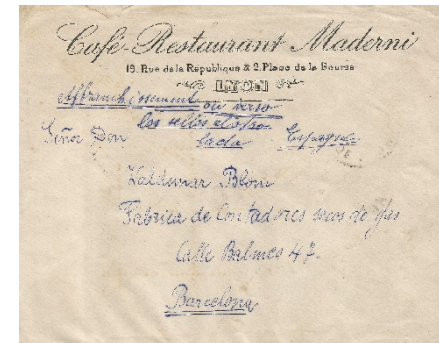 Café-Restaurant Maderni
19, Rue de la Republique & 2, Place de la Bourse
LYON
Affranchissement au verso
los sellos al otro
lado Espagne
Señor Don
Valdemar Blom
Fabrica de Contadores secos de gas
Calle Balmes 47.
Barcelona